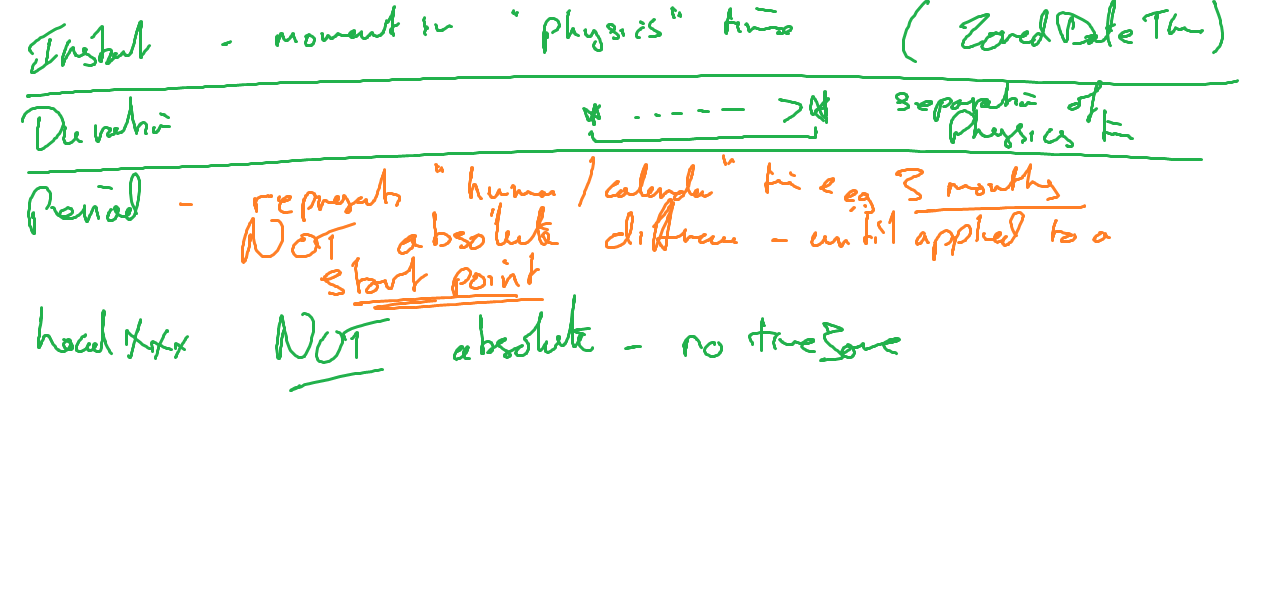 Instant - moment in "physics" time (ZonedDateTime)
Duration * ..---- >* separation of
Physics t
Period - represents "human/calendar" time eg 3 months
NOT absolute difference - until applied to a
start point
Local XXX NOT absolute - no timezone